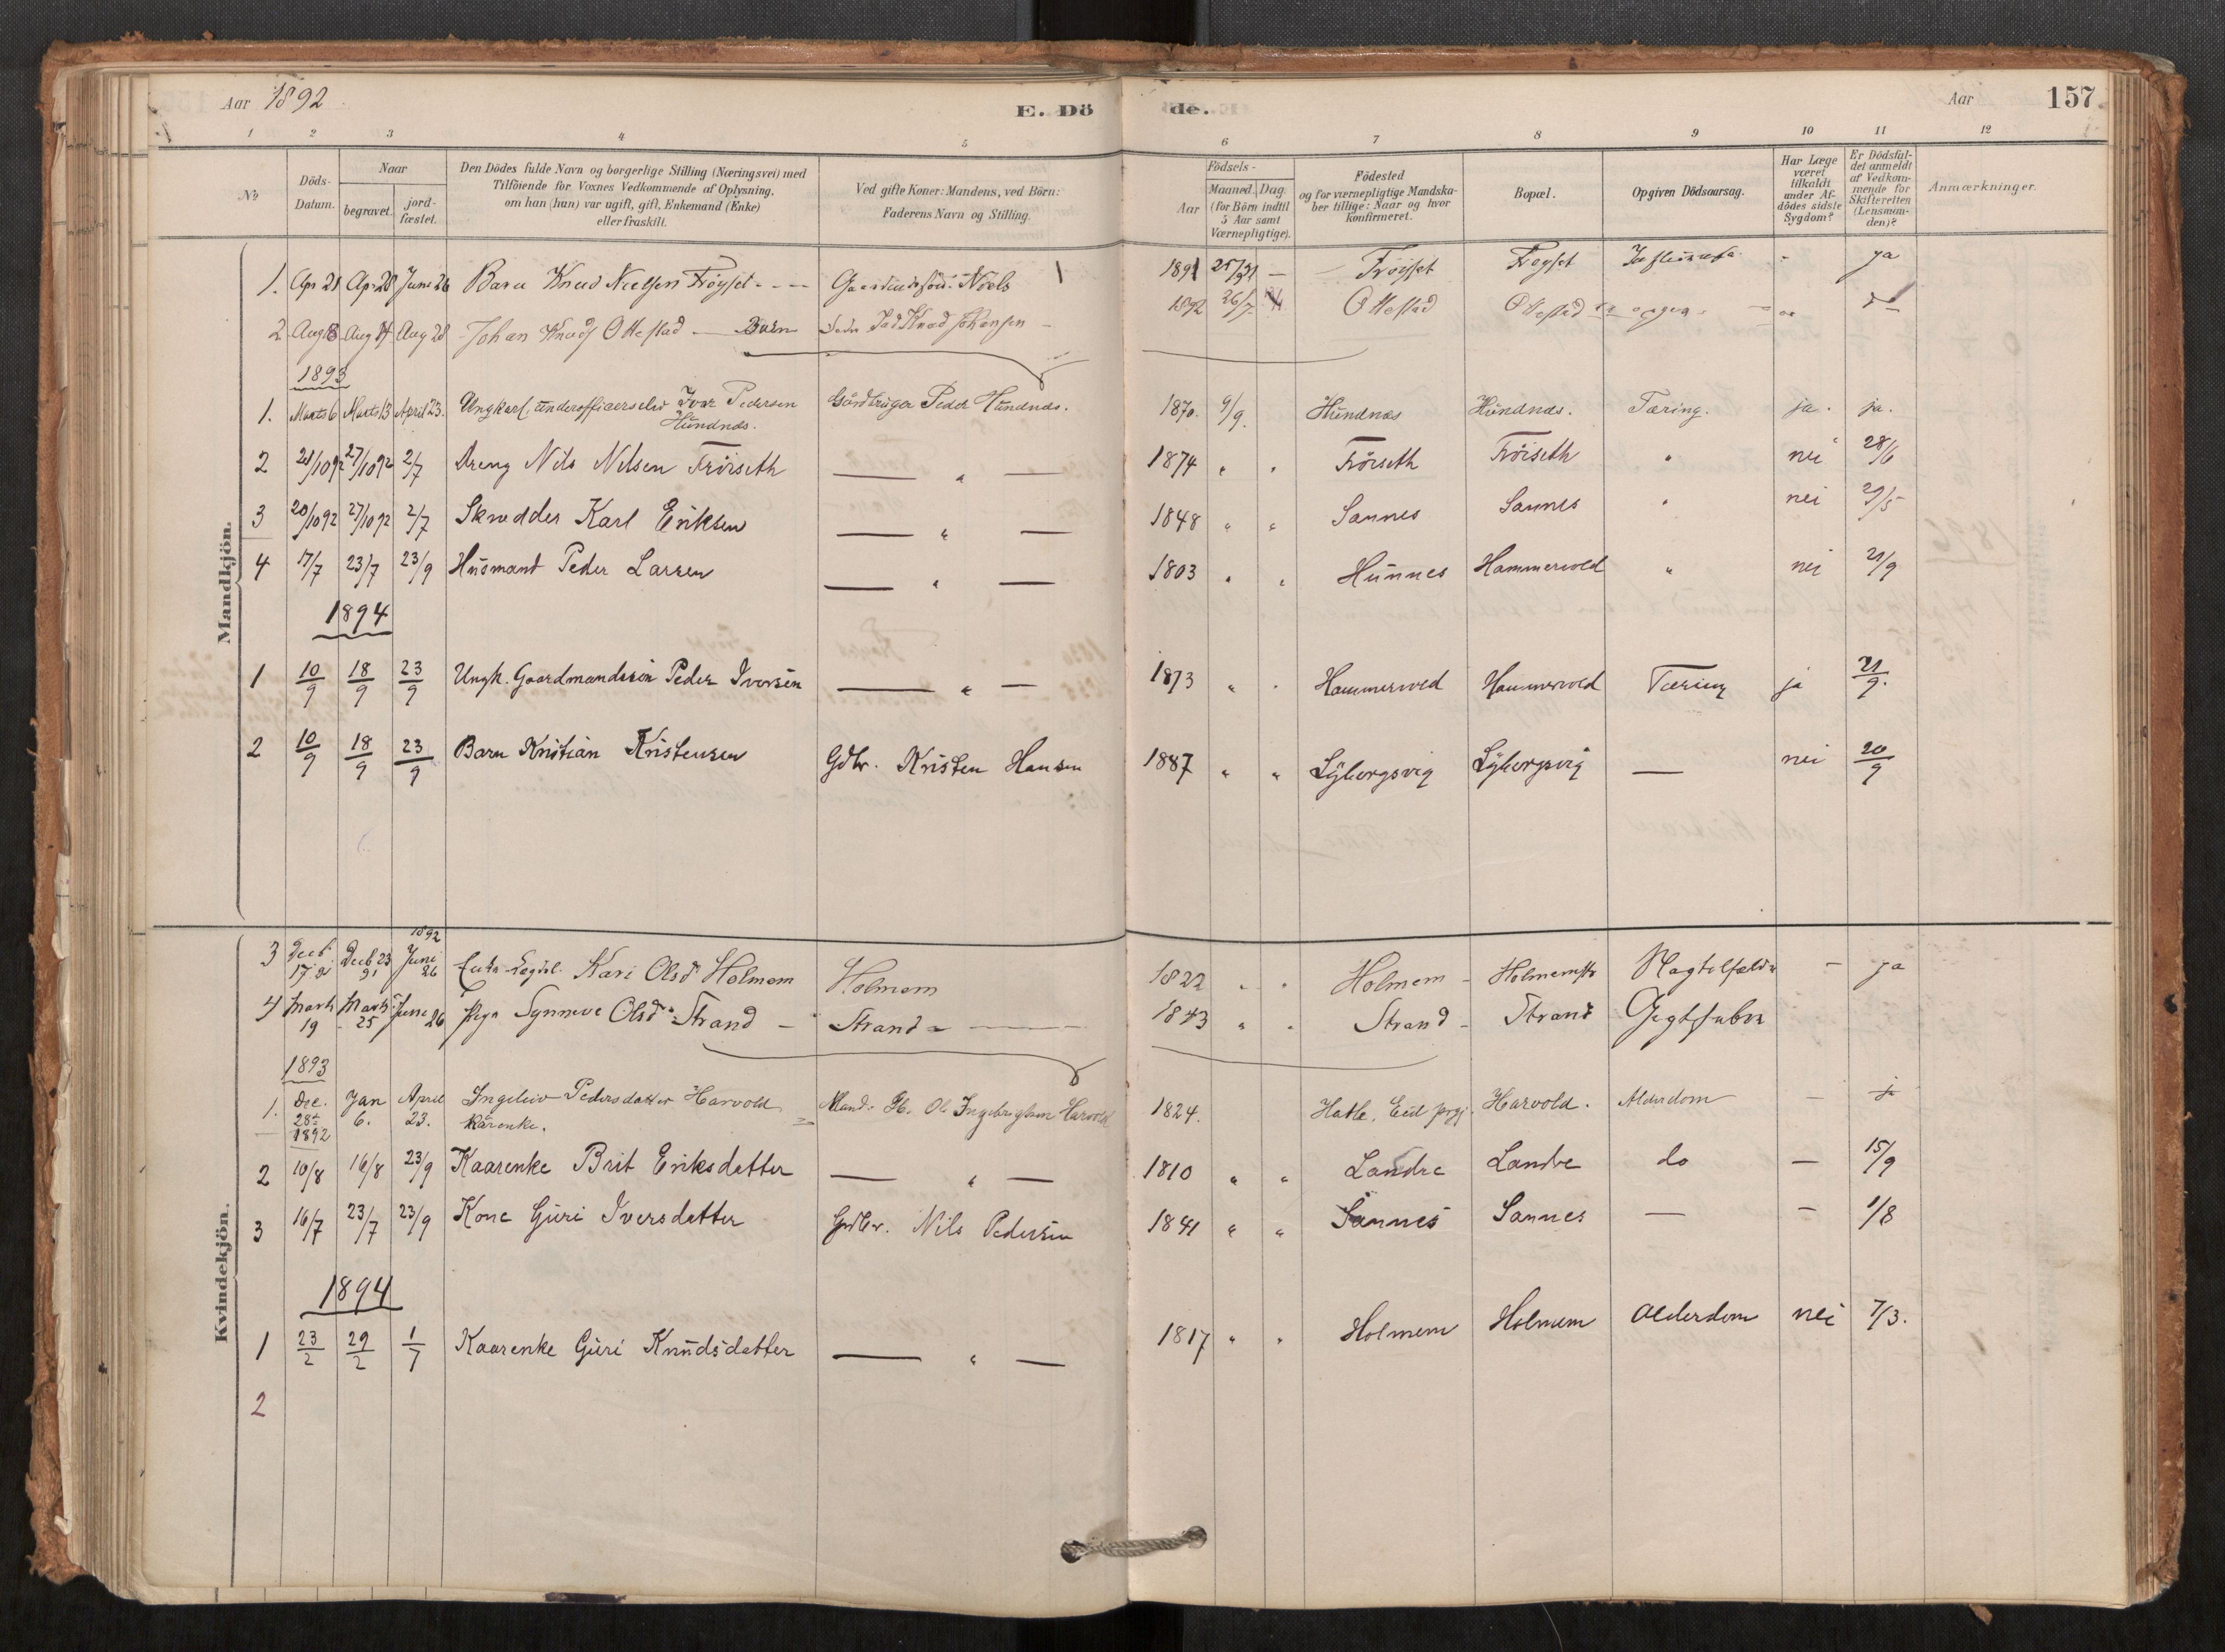 Aar 1892 E. Dö de. Aar 157
1 2 3 4 5 6 7 8 9 10 11 12
No
Döds-Datum.
Naar
begravet.
jord-fæstet.
Den Dödes fulde Navn og borgerlige Stilling (Næringsvei) med
Tilföiende for Voxnes Vedkommende af Oplysning,
om han (hun) var ugift, gift, Enkemand (Enke)
eller fraskilt.
Ved gifte Koner: Mandens, ved Börn:
Faderens Navn og Stilling.
Födsels-
Aar
Maaned. Dag.
(for Börn indtil
5 Aar samt
Værnepligtige).
Födested
og for værnepligtige Mandska-
ber tillige: Naar og hvor
konfirmeret.
Bopæl.
Opgiven Dödsaarsag.
Har Læge
været
tilkaldt
under Af-
dödes sidste
Sygdom?
Er Dödsfal-
det anmeldt
af Vedkom-
mende for
Skifteretten
(Lensman-
den)?
Anmærkninger.
Mandkjön.
1. Apr 21 Apr 28 Juni 26 Barn Knud Nielsen Fröyset Niels 1891 Fröiset Frøyset - ja
2 Aug 8 Aug 14 Aug 28 Johan Knudsø Ottestad - Barn Knud Johansen 1892 26/7 Ottestad Ottestad
1893
1. Marts 6 Marts 13 April 23. Ungkarl, underofficerselev Ivar Pedersen Gårdbruger Peder Hundnes. 1870. 9/9. Hundnæs Hundnæs. Tæring. ja. ja.
Hundnæs.
2 21/10 92 27/10 92 2/7 Dreng Nils Nilsen Fröiseth — " — 1874 " " Fröiseth Fröiseth " nei 28/6
3 20/10 92 27/10 92 2/7 Skredder Karl Eriksen — " — 1848 " " Sannes Sannes " nei 29/5
4 17/7 23/7 23/9 Husmand Peder Larsen — " — 1803 " " Hunnes Hammervold " nei 21/9
1894
1 10/9 18/9 23/9 Ungk. Gaardmandssön Peder Iversen — " — 1873 " " Hammervold Hammervold Tæring ja 21/9.
2 10/9 18/9 23/9 Barn Kristian Kristensen Gdbr. Kristen Hansen 1887 " " Lÿborgsvig Lÿborgsvig — nei 20/9
Kvindekjön.
3 Decb 17 91 Decb 23 91 1892 Juni 26 Kari Olsd Holmem Holmem 1822 " " Holmem - - ja
4 Marts 19 Marts 25 Juni 26 Pige Synneve Olsd Strand - Strand - 1843 " " Strand - Strand
1893
1. Dec. 28de 1892 Jan 6. April 23. Ingeleiv Pedersdatter Harvold Mand: Gb. Ol Ingebrigtsen Harvold 1824. Hatle, Eid prgj. Harvold. Alderdom - ja
Kårenke.
2 10/8 16/8 23/9 Kaarenke Brit Eriksdatter — " — 1810 " " Landre Landre do — 15/9
3 16/7 23/7 23/9 Kone Guri Iversdatter Gdbr. Nils Pedersen 1841 " " Sannes Sannes — - 1/8
1894
1 23/2 29/2 1/7 Kaarenke Guri Knudsdatter — " — 1817 " " Holmem Holmem Alderdom nei 7/3.
2